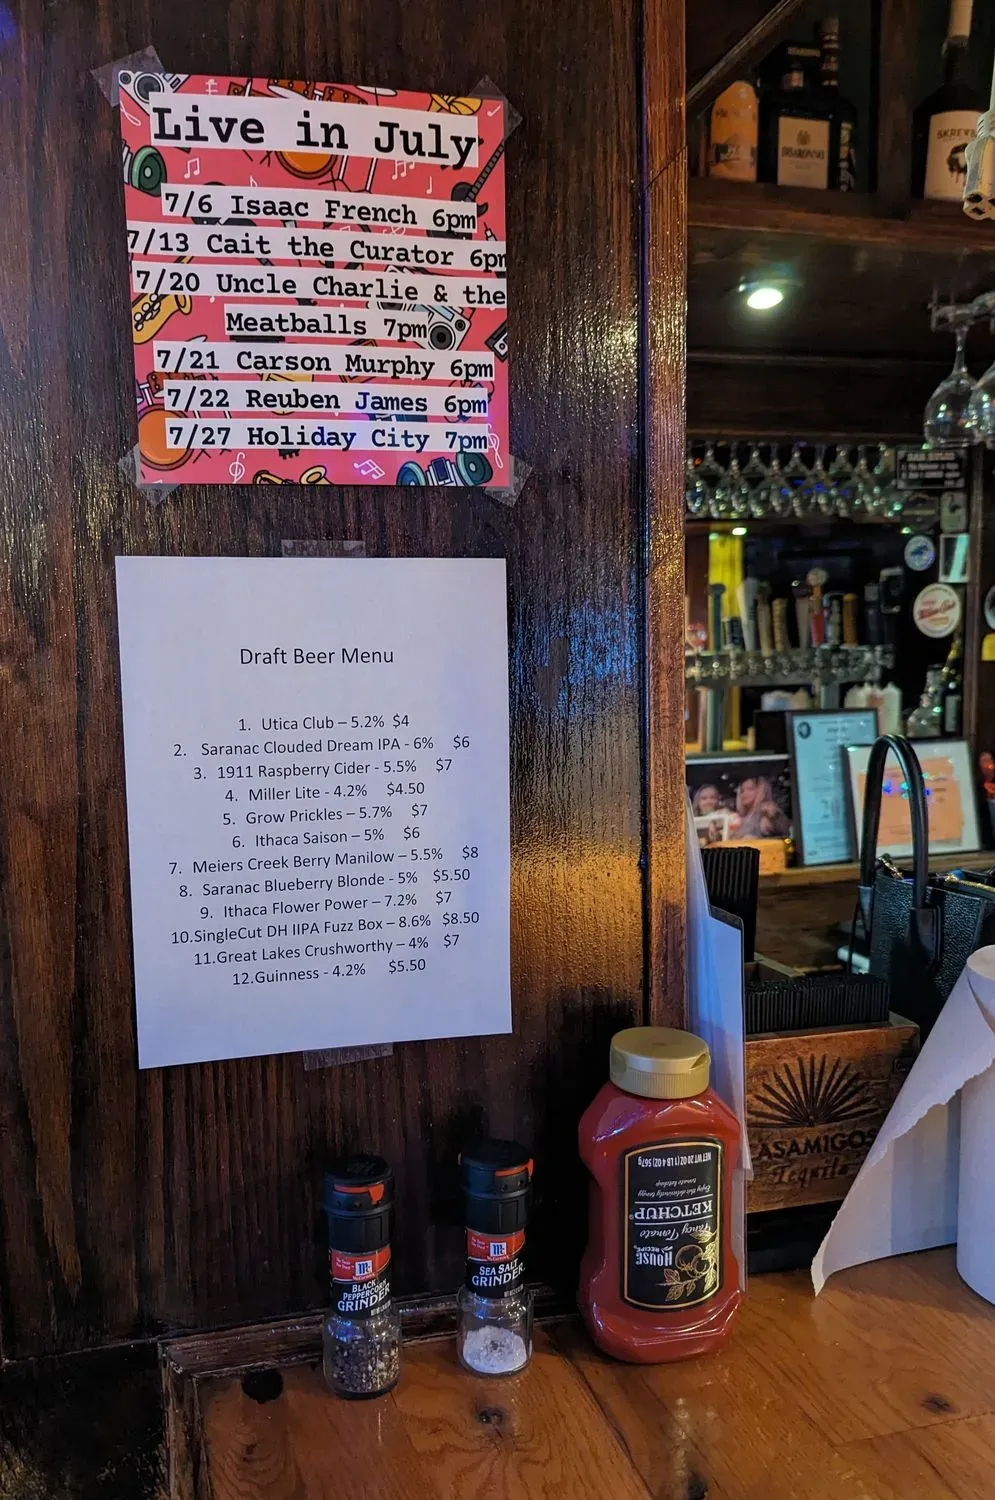 Live in July
7/6 Isaac French 6pm
7/13 Cait the Curator 6pm
7/20 Uncle Charlie & the
Meatballs 7pm
7/21 Carson Murphy 6pm
7/22 Reuben James 6pm
7/27 Holiday City 7pm
Draft Beer Menu
1. Utica Club – 5.2% $4
2. Saranac Clouded Dream IPA - 6% $6
3. 1911 Raspberry Cider - 5.5% $7
4. Miller Lite - 4.2% $4.50
5. Grow Prickles – 5.7% $7
6. Ithaca Saison – 5% $6
7. Meiers Creek Berry Manilow – 5.5% $8
8. Saranac Blueberry Blonde - 5% $5.50
9. Ithaca Flower Power – 7.2% $7
10.SingleCut DH IIPA Fuzz Box – 8.6% $8.50
11.Great Lakes Crushworthy – 4% $7
12.Guinness - 4.2% $5.50
DISARONNO
SKREWB
McCormick
BLACK
PEPPERCORN
GRINDER
McCormick
SEA SALT
GRINDER
HOUSE
RECIPE
Fancy Tomato
KETCHUP
Enjoy this deliciously tangy
tomato ketchup
NET WT 20 OZ (1 LB 4 OZ) 567g
ASAMIGOS
Tequila